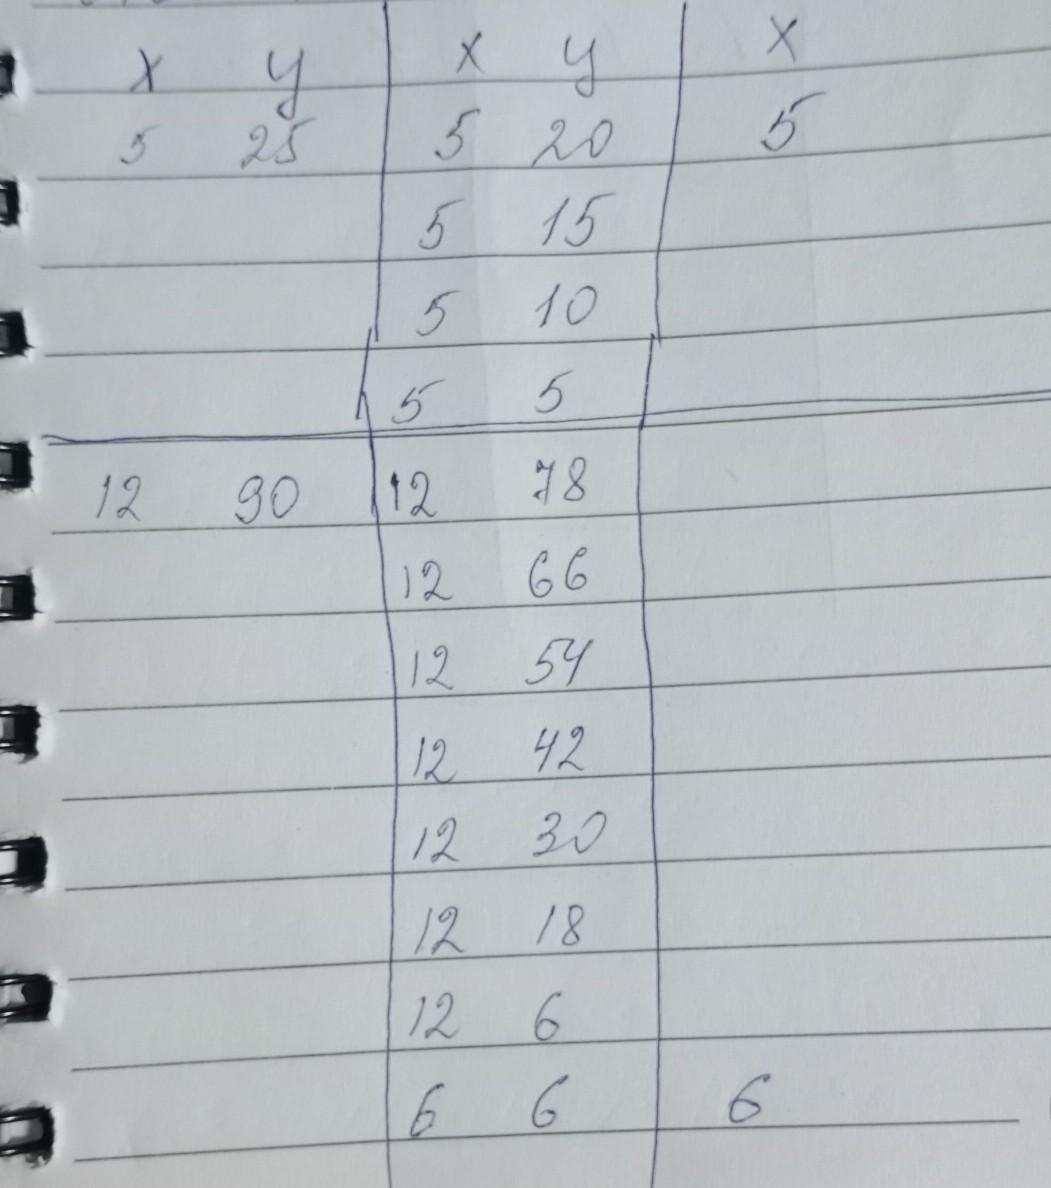 x y x y x
5 25 5 20 5
5 15
5 10
5 5
12 90 12 78
12 66
12 54
12 42
12 30
12 18
12 6
6 6 6